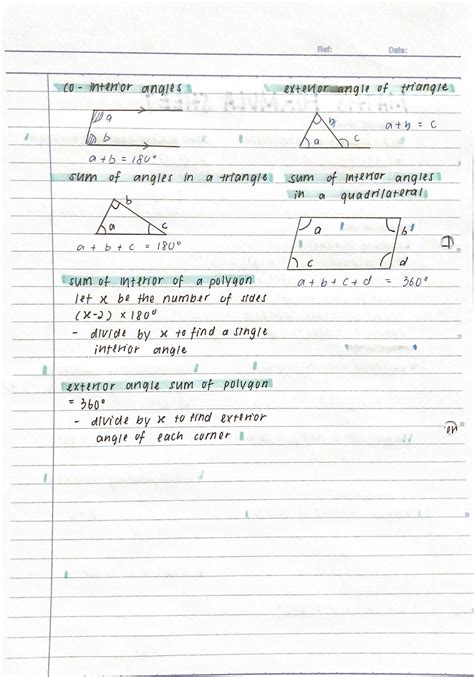 Ref: Date:
co - interior angles
exterior angle of triangle
a
b
a + b = 180°
b
a
c
a + b = c
sum of angles in a triangle
b
a
c
a + b + c = 180°
sum of interior angles
in a quadrilateral
a
b
c
d
a + b + c + d = 360°
sum of interior of a polygon
let x be the number of sides
(x-2) × 180°
- divide by x to find a single
interior angle
exterior angle sum of polygon
= 360°
- divide by x to find exterior
angle of each corner